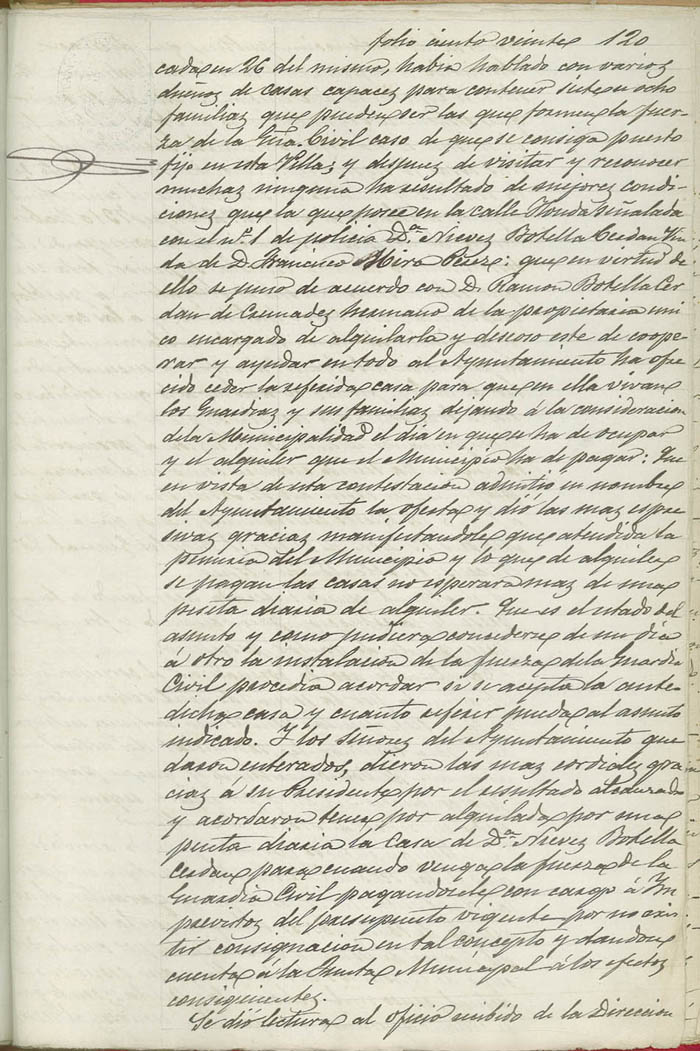 folio ciento veinte 120
cada en 26 del mismo, habia hablado con varios
dueños de casas capaces para contener siete u ocho
familias que pueden ser las que formen la fuer-
za de la Gua. Civil caso de que se consiga puesto
fijo en esta Villa, y despues de visitar y reconocer
muchas ninguna ha resultado de mejores condi-
ciones que la que posee en la calle Honda señalada
con el nº. 1 de policia Dª. Nieves Botella Cerdan Viu-
da de D. Francisco Mira Perez: que en virtud de
ello se puso de acuerdo con D. Ramon Botella Cer
dan de Cremades hermano de la propietaria uni
co encargado de alquilarla y deseoso este de coope-
rar y ayudar en todo al Ayuntamiento ha ofre
cido ceder la referida casa para que en ella vivan
los Guardias y sus familias dejando á la consideracion
de la Municipalidad el dia en que se ha de ocupar
y el alquiler que el Municipio ha de pagar: Que
en vista de esta contestacion admitio en nombre
del Ayuntamiento la oferta y dió las mas espre
sivas gracias manifestandole que atendida la
penuria del Municipio y lo que de alquiler
se pagan las casas no esperara mas de una
peseta diaria de alquiler. Que es el estado del
asunto y como pudiera concederse de un dia
á otro la instalacion de la fuerza de la Guardia
Civil procedia acordar si se acepta la ante
dicha casa y cuanto referir pueda al asunto
indicado. Y los Señores del Ayuntamiento que
daron enterados, dieron las mas cordiales gra
cias á su Presidente por el resultado alcanzado
y acordaron tener por alquilada por una
peseta diaria la Casa de Dª. Nieves Botella
Cerdan para cuando venga la fuerza de la
Guardia Civil pagandosele con cargo á Im
previstos del presupuesto vigente por no exis
tir consignacion en tal concepto y dandose
cuenta á la Junta Municipal á los efectos
consiguientes.
Se dió lectura al oficio recibido de la Direccion